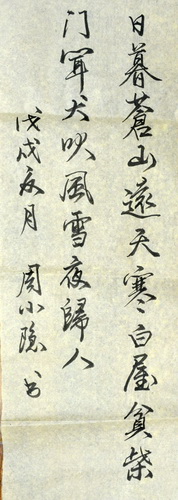 日暮蒼山遠天寒白屋貧柴
门闻犬吠風雪夜歸人
戊戌年月 周小隐书